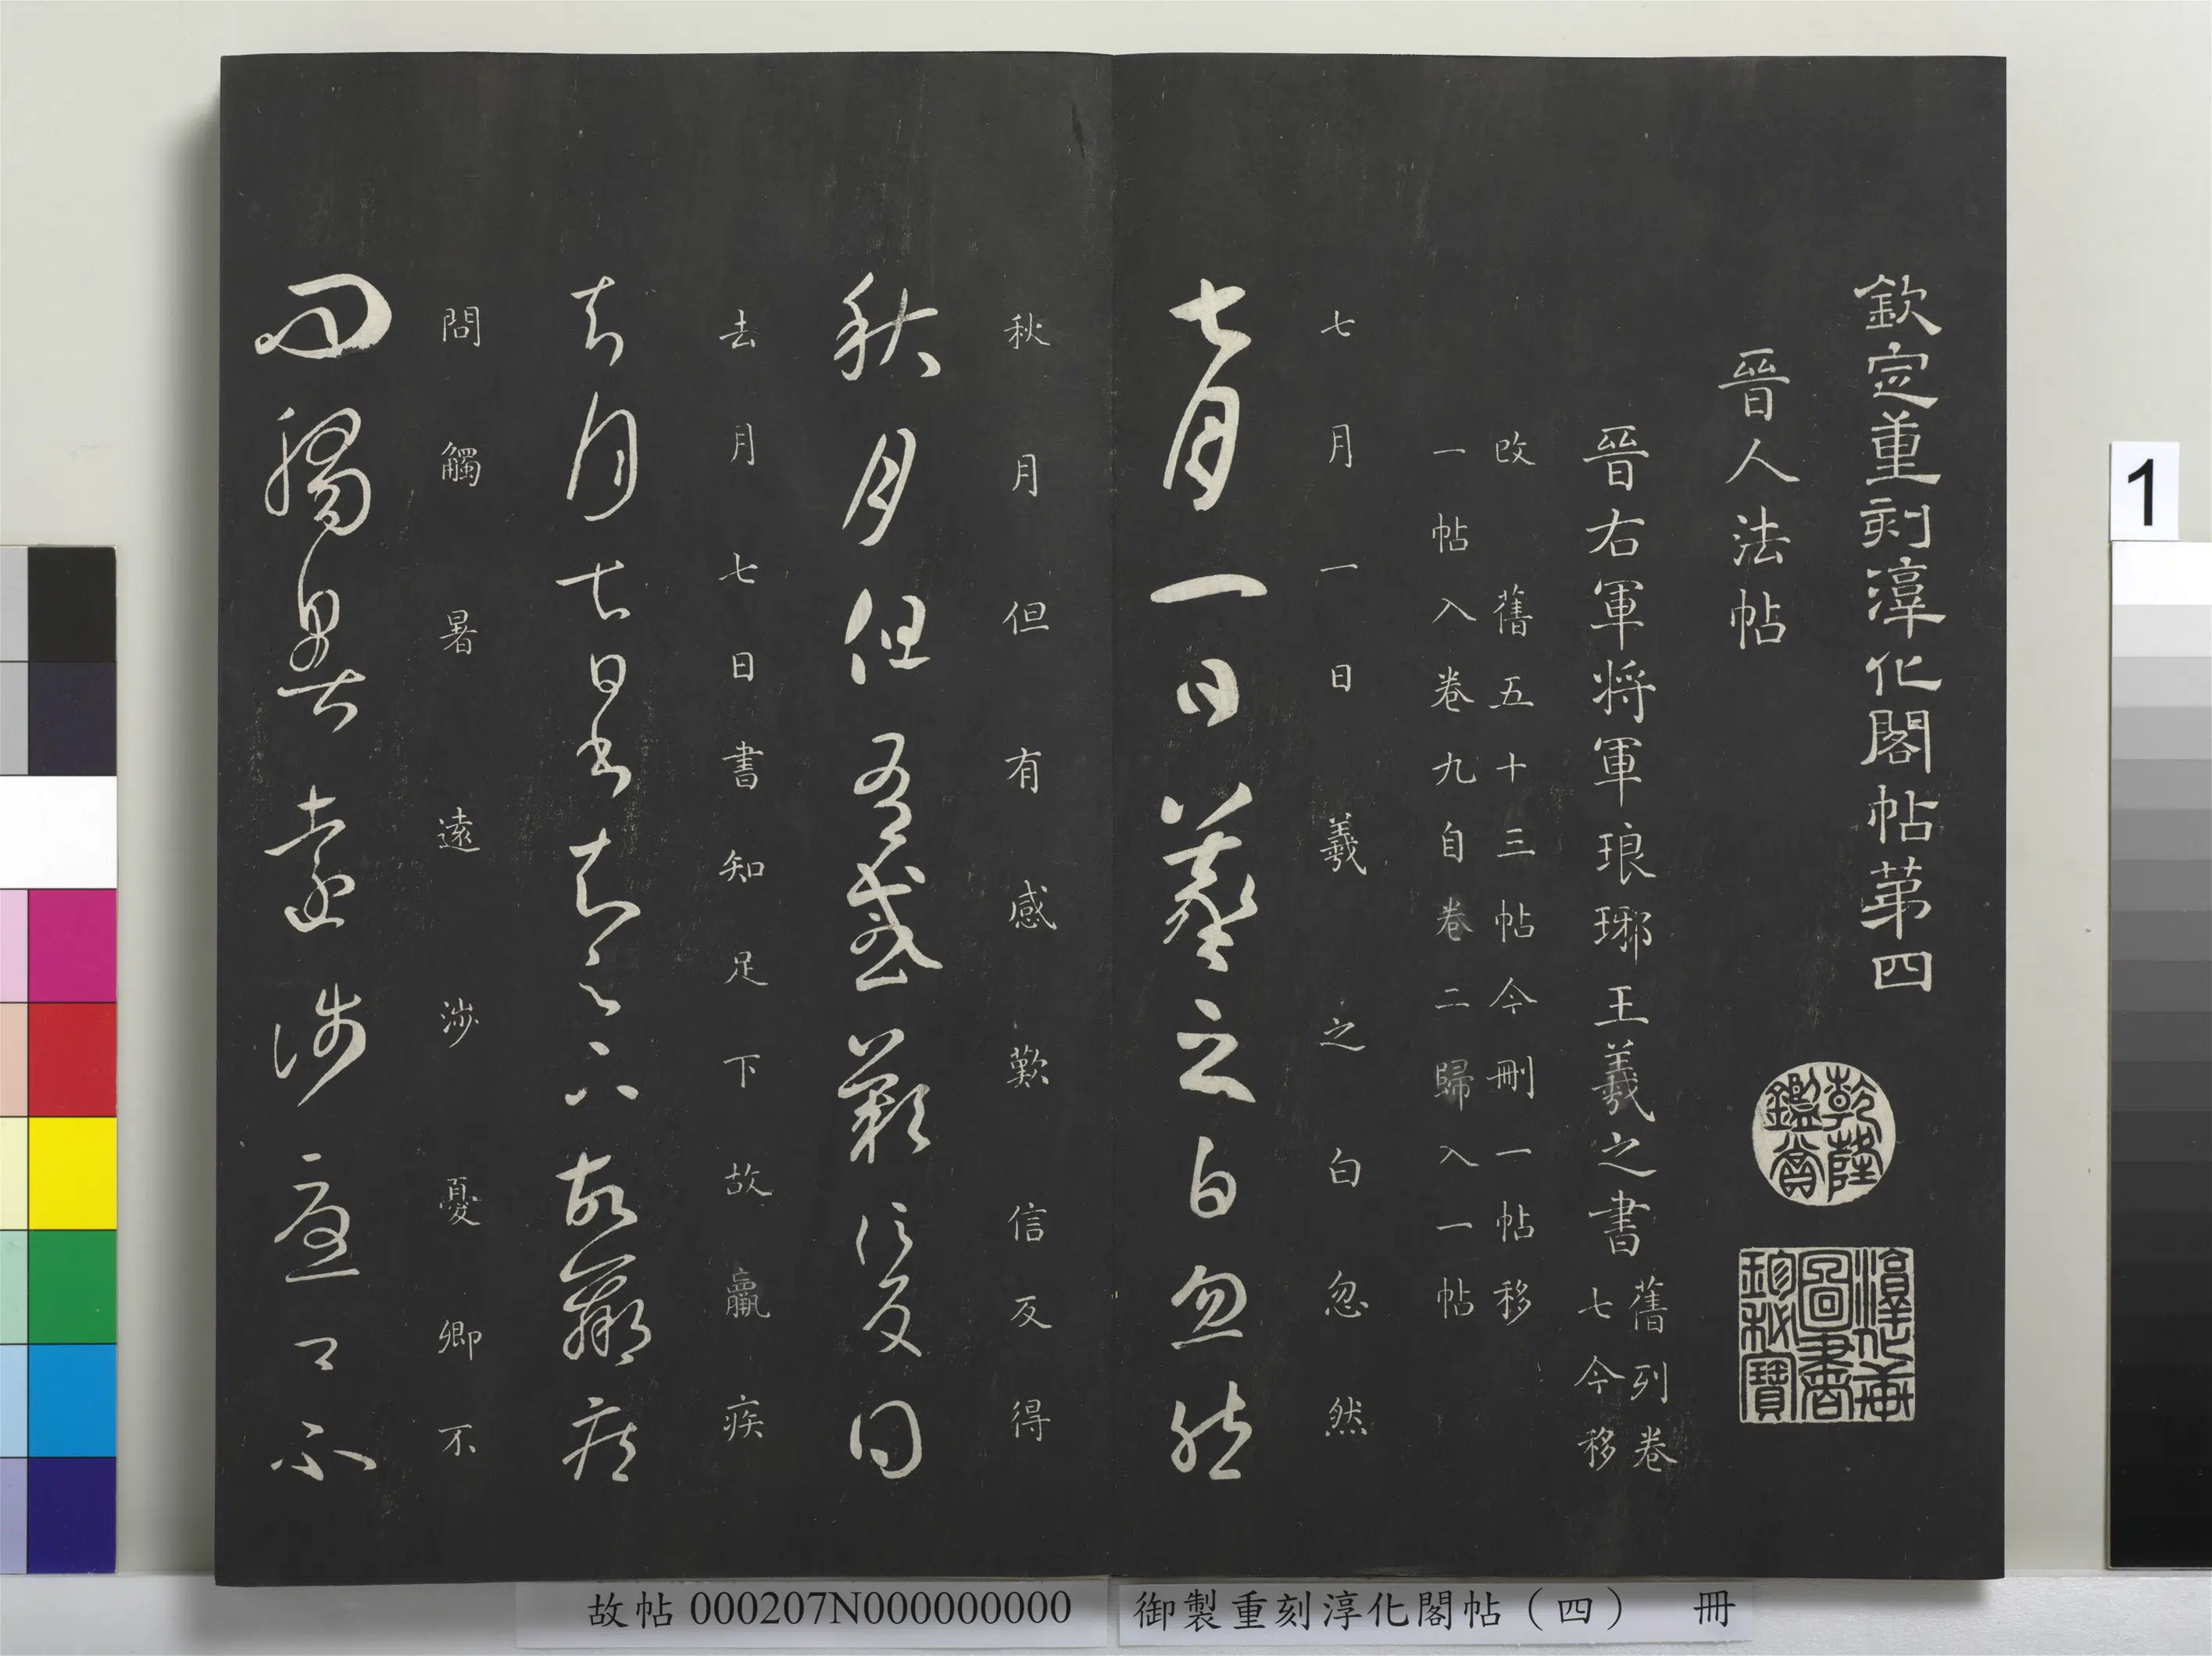 欽定重刻淳化閣帖第四
乾隆鑑賞
淳化軒圖書珍秘寶
晉人法帖
晉右軍將軍琅琊王羲之書
舊列卷
七今移
改 舊五十三帖今刪一帖移
一帖入卷九自卷二歸入一帖
七月一日羲之白忽然
七月一日羲之白忽然
秋月但有感歎信反得
秋月但有感歎信反得
去月七日書知足下故羸疾
去月七日書知足下故羸疾
問觸暑遠涉憂卿不
問觸暑遠涉憂卿不
故帖000207N000000000
御製重刻淳化閣帖（四） 冊
1